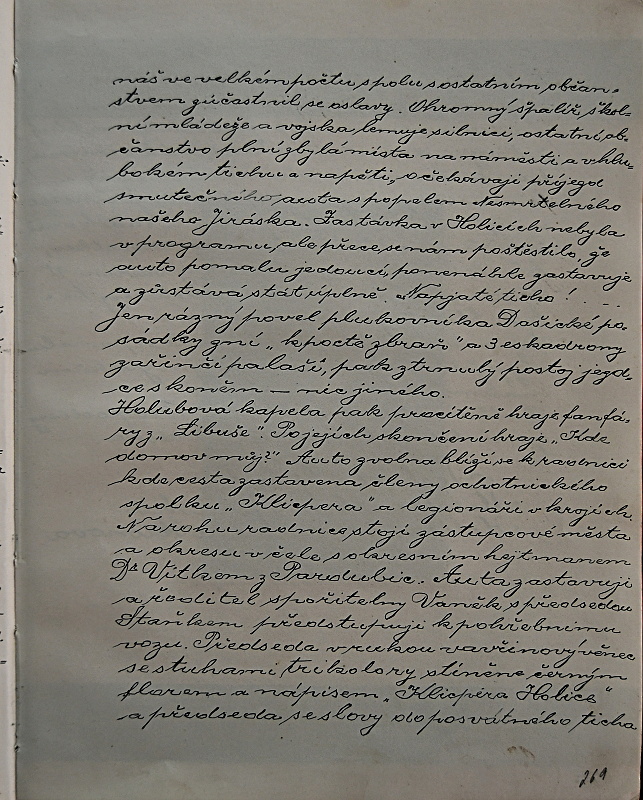 náš ve velkém počtu spolu s ostatním občan-
stvem zúčastnil se oslavy. Ohromný špalíř, škol-
ní mládeže a vojska lemuje silnici, ostatní ob-
čanstvo plní zbylá místa na náměstí a v hlu-
bokém tichu a napětí, očekávají příjezd
smutečného auta s popelem Nesmrtelného
našeho Jiráska. Zastávka v Holicích nebyla
v programu, ale přece se nám poštěstilo, že
auto pomalu jedoucí, ponenáhle zastavuje
a zůstává stát úplně. Napjaté ticho! . . .
Jen rázný povel plukovníka Dašické po-
sádky zní „k poctě zbraň" a 3 eskadrony
zařinčí palaši, pak ztrnulý postoj jezd-
ce s koněm — nic jiného.
Holubová kapela pak procítěně hraje fanfá-
ry z „Libuše". Po jejich skončení hraje „Kde
domov můj?" Auto zvolna blíží se k radnici
kde cesta zastavena členy ochotnického
spolku „Klicpera" a legionáři v krojích.
Na rohu radnice stojí zástupcové města
a okresu v čele s okresním hejtmanem
Dr Vítkem z Pardubic. Auta zastavují
a ředitel spořitelny Vaněk s předsedou
Staňkem předstupují k pohřebnímu
vozu. Předseda v rukou vavřínový věnec
se stuhami trikolory stíněné černým
florem a nápisem „Klicpera Holice"
a předseda se slovy do posvátného ticha
269